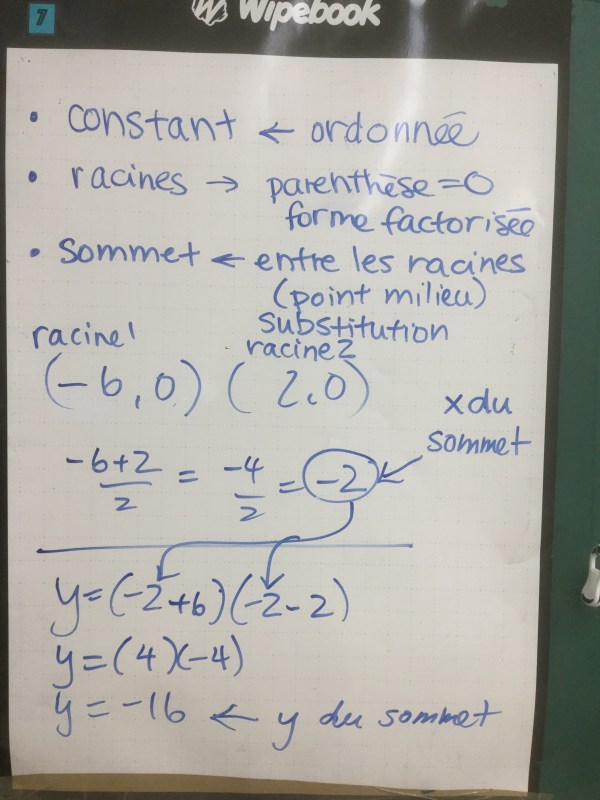 7
Wipebook
• constant ← ordonnée
• racines → parenthèse=0
forme factorisée
• sommet ← entre les racines
(point milieu)
substitution
racine1
racine2
(-6,0) (2,0)
x du
sommet
-6+2/2 = -4/2 = -2
y=(-2+6)(-2-2)
y=(4)(-4)
y=-16 ← y du sommet